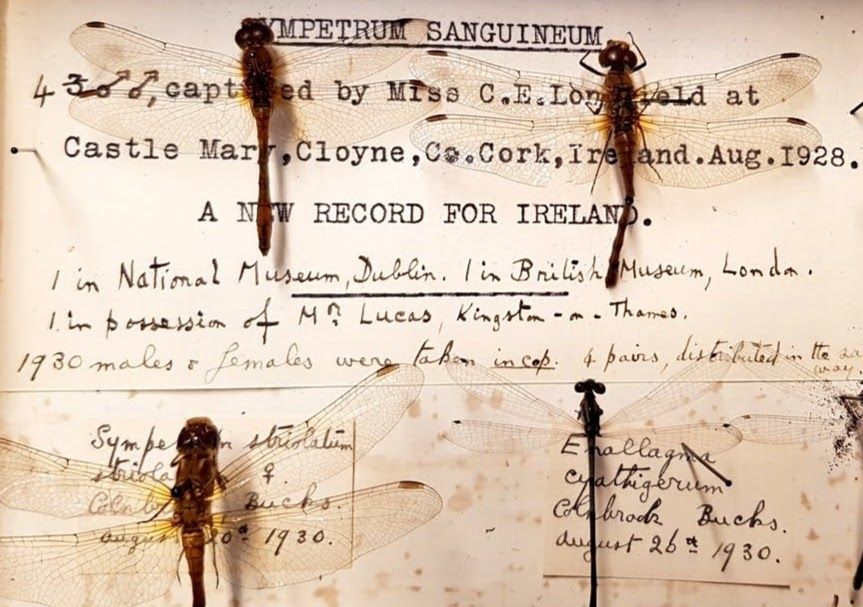 SYMPETRUM SANGUINEUM
4 3 ♂♂, captured by Miss C.E.Longfield at
Castle Mary,Cloyne,Co.Cork,Ireland.Aug.1928.
A NEW RECORD FOR IRELAND.
1 in National Museum, Dublin. 1 in British Museum, London.
1 in possession of Mr Lucas, Kingston-on-Thames.
1930 males & females were taken in cop. 4 pairs, distributed in the
way.
Sympetrum striolatum
♀.
Bucks.
August 20th 1930.
Enallagma
cyathigerum
Colnbrook Bucks.
August 26th 1930.